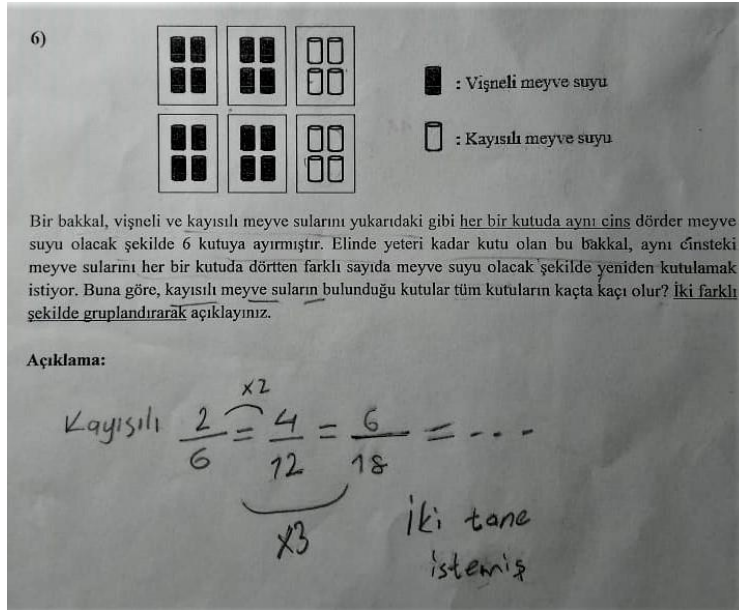 6)
: Vişneli meyve suyu
: Kayısılı meyve suyu
Bir bakkal, vişneli ve kayısılı meyve sularını yukarıdaki gibi her bir kutuda aynı cins dörder meyve
suyu olacak şekilde 6 kutuya ayırmıştır. Elinde yeteri kadar kutu olan bu bakkal, aynı cinsteki
meyve sularını her bir kutuda dörtten farklı sayıda meyve suyu olacak şekilde yeniden kutulamak
istiyor. Buna göre, kayısılı meyve suların bulunduğu kutular tüm kutuların kaçta kaçı olur? İki farklı
şekilde gruplandırarak açıklayınız.
Açıklama:
x2
Kayısılı 2/6 = 4/12 = 6/18 = ...
x3
İki tane
istemiş